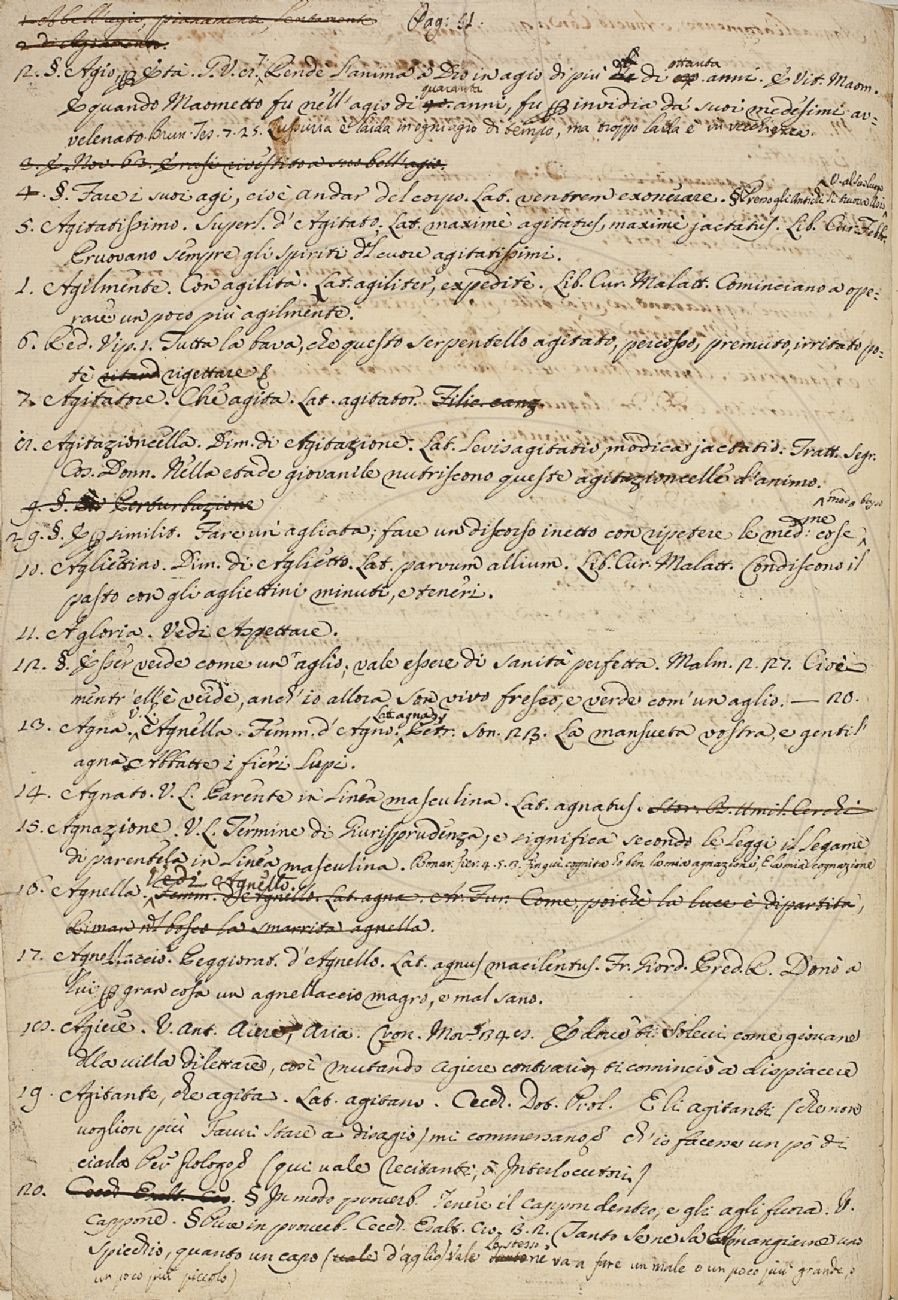 1. A bell'agio, pianamente, lentamente Pag: 41.
2. di Agiamento.
2. §. Agio, p Età. P. V. Rende l'anima a Dio in agio di più di ottanta anni. E Vit. Maom.
E quando Maometto fu nell'agio di quaranta anni, fu p invidia da' suoi medesimi av-
velenato. Brun. Tes. 7. 25. Lussuria è laida in ogni agio di tempo, ma troppo laida è in vecchiezza.
3. E Nov. 63. a suo bell'agio.
4. §. Fare i suoi agi, cioè andar del corpo. Lab. ventrem exonerare. §
5. Agitatissimo. Superl. d'Agitato. Lat. maximè agitatus, maximè jactatus. Lib. Cur. Febb.
Pruovano sempre gli spiriti del cuore agitatissimi.
1. Agilmente. Con agilità. Lat. agiliter, expeditè. Lib. Cur. Malatt. Cominciano a ope-
rare un poco più agilmente.
6. Red. Vip. 1. Tutta la bava, che questo serpentello agitato, percosso, premuto, irritato po-
tè rigettare
7. Agitatore. Che agita. Lat. agitator. Filic. canz
8. Agitazioncella. Dim. di Agitazione. Lat. levis agitatio, modica jactatio. Tratt. Segr.
Cos. Donn. Nella etade giovanile nutriscono queste agitazioncelle d'animo.
9. §. Perturbazione
2 9. §. E p similit. Fare un'agliata; fare un discorso inetto con ripetere le med:me cose
10. Agliettino. Dim. di Aglietto. Lat. parvum allium. Lib. Cur. Malatt. Condiscono il
pasto con gli agliettini minuti, e teneri.
11. Agloria. Vedi Aspettare.
12. §. Esser verde come un'aglio, vale essere di sanità perfetta. Malm. 2. 27. Cioè
mentr'ell'è verde, anch'io allora son vivo fresco, e verde com'un aglio. — 20.
13. Agna. V. E Agnella. Femm. d'Agno. Lat. agna. Petr. Son. 23. La mansueta vostra, e gentil
agna Abbatte i fieri lupi.
14. Agnato. V. L. Parente in linea masculina. Lat. agnatus. Stor. Cerchi
15. Agnazione. V. L. Termine di Giurisprudenza, e significa secondo le Leggi il legame
di parentela in linea masculina. Bonar. Fier. 4. 5. la mia agnazione, E la mia cognazione
16. Agnella. Vedi Agnello. Femm. d'Agnello. Lat. agna. Come, poichè la luce è dipartita,
Riman nel bosco la smarrita agnella.
17. Agnellaccio. Peggiorat. d'Agnello. Lat. agnus macilentus. Fr. Giord. Pred. R. Donò a
lui p gran cosa un agnellaccio magro, e mal sano.
18. Agiere. V. Ant. Aiere, Aria. Cron. Mor. 348. E dove ti solevi come giovane
della villa dilettare, così mutando agiere contrario ti cominciò a dispiacere
19. Agitante, che agita. Lat. agitans. Cecch. Dot. Prol. E li agitanti (che non
voglion più farvi stare a disagio) mi commessano, ch'io facesse un pò di
ciarla per prologo (qui vale Recitanti, o Interlocutori)
20. Cecch. Esalt. Cro. § In modo proverb. Tenere il cappon dentro, e gli agli fuora. V.
Cappone. § Pure in proverb. Cecch. Esalt. Cro. 3. 2. (Tanto se ne sa mangiarne uno
spicchio, quanto un capo (vale d'aglio) vale lo stesso va a fare un male o un poco più grande, o
un poco più piccolo)